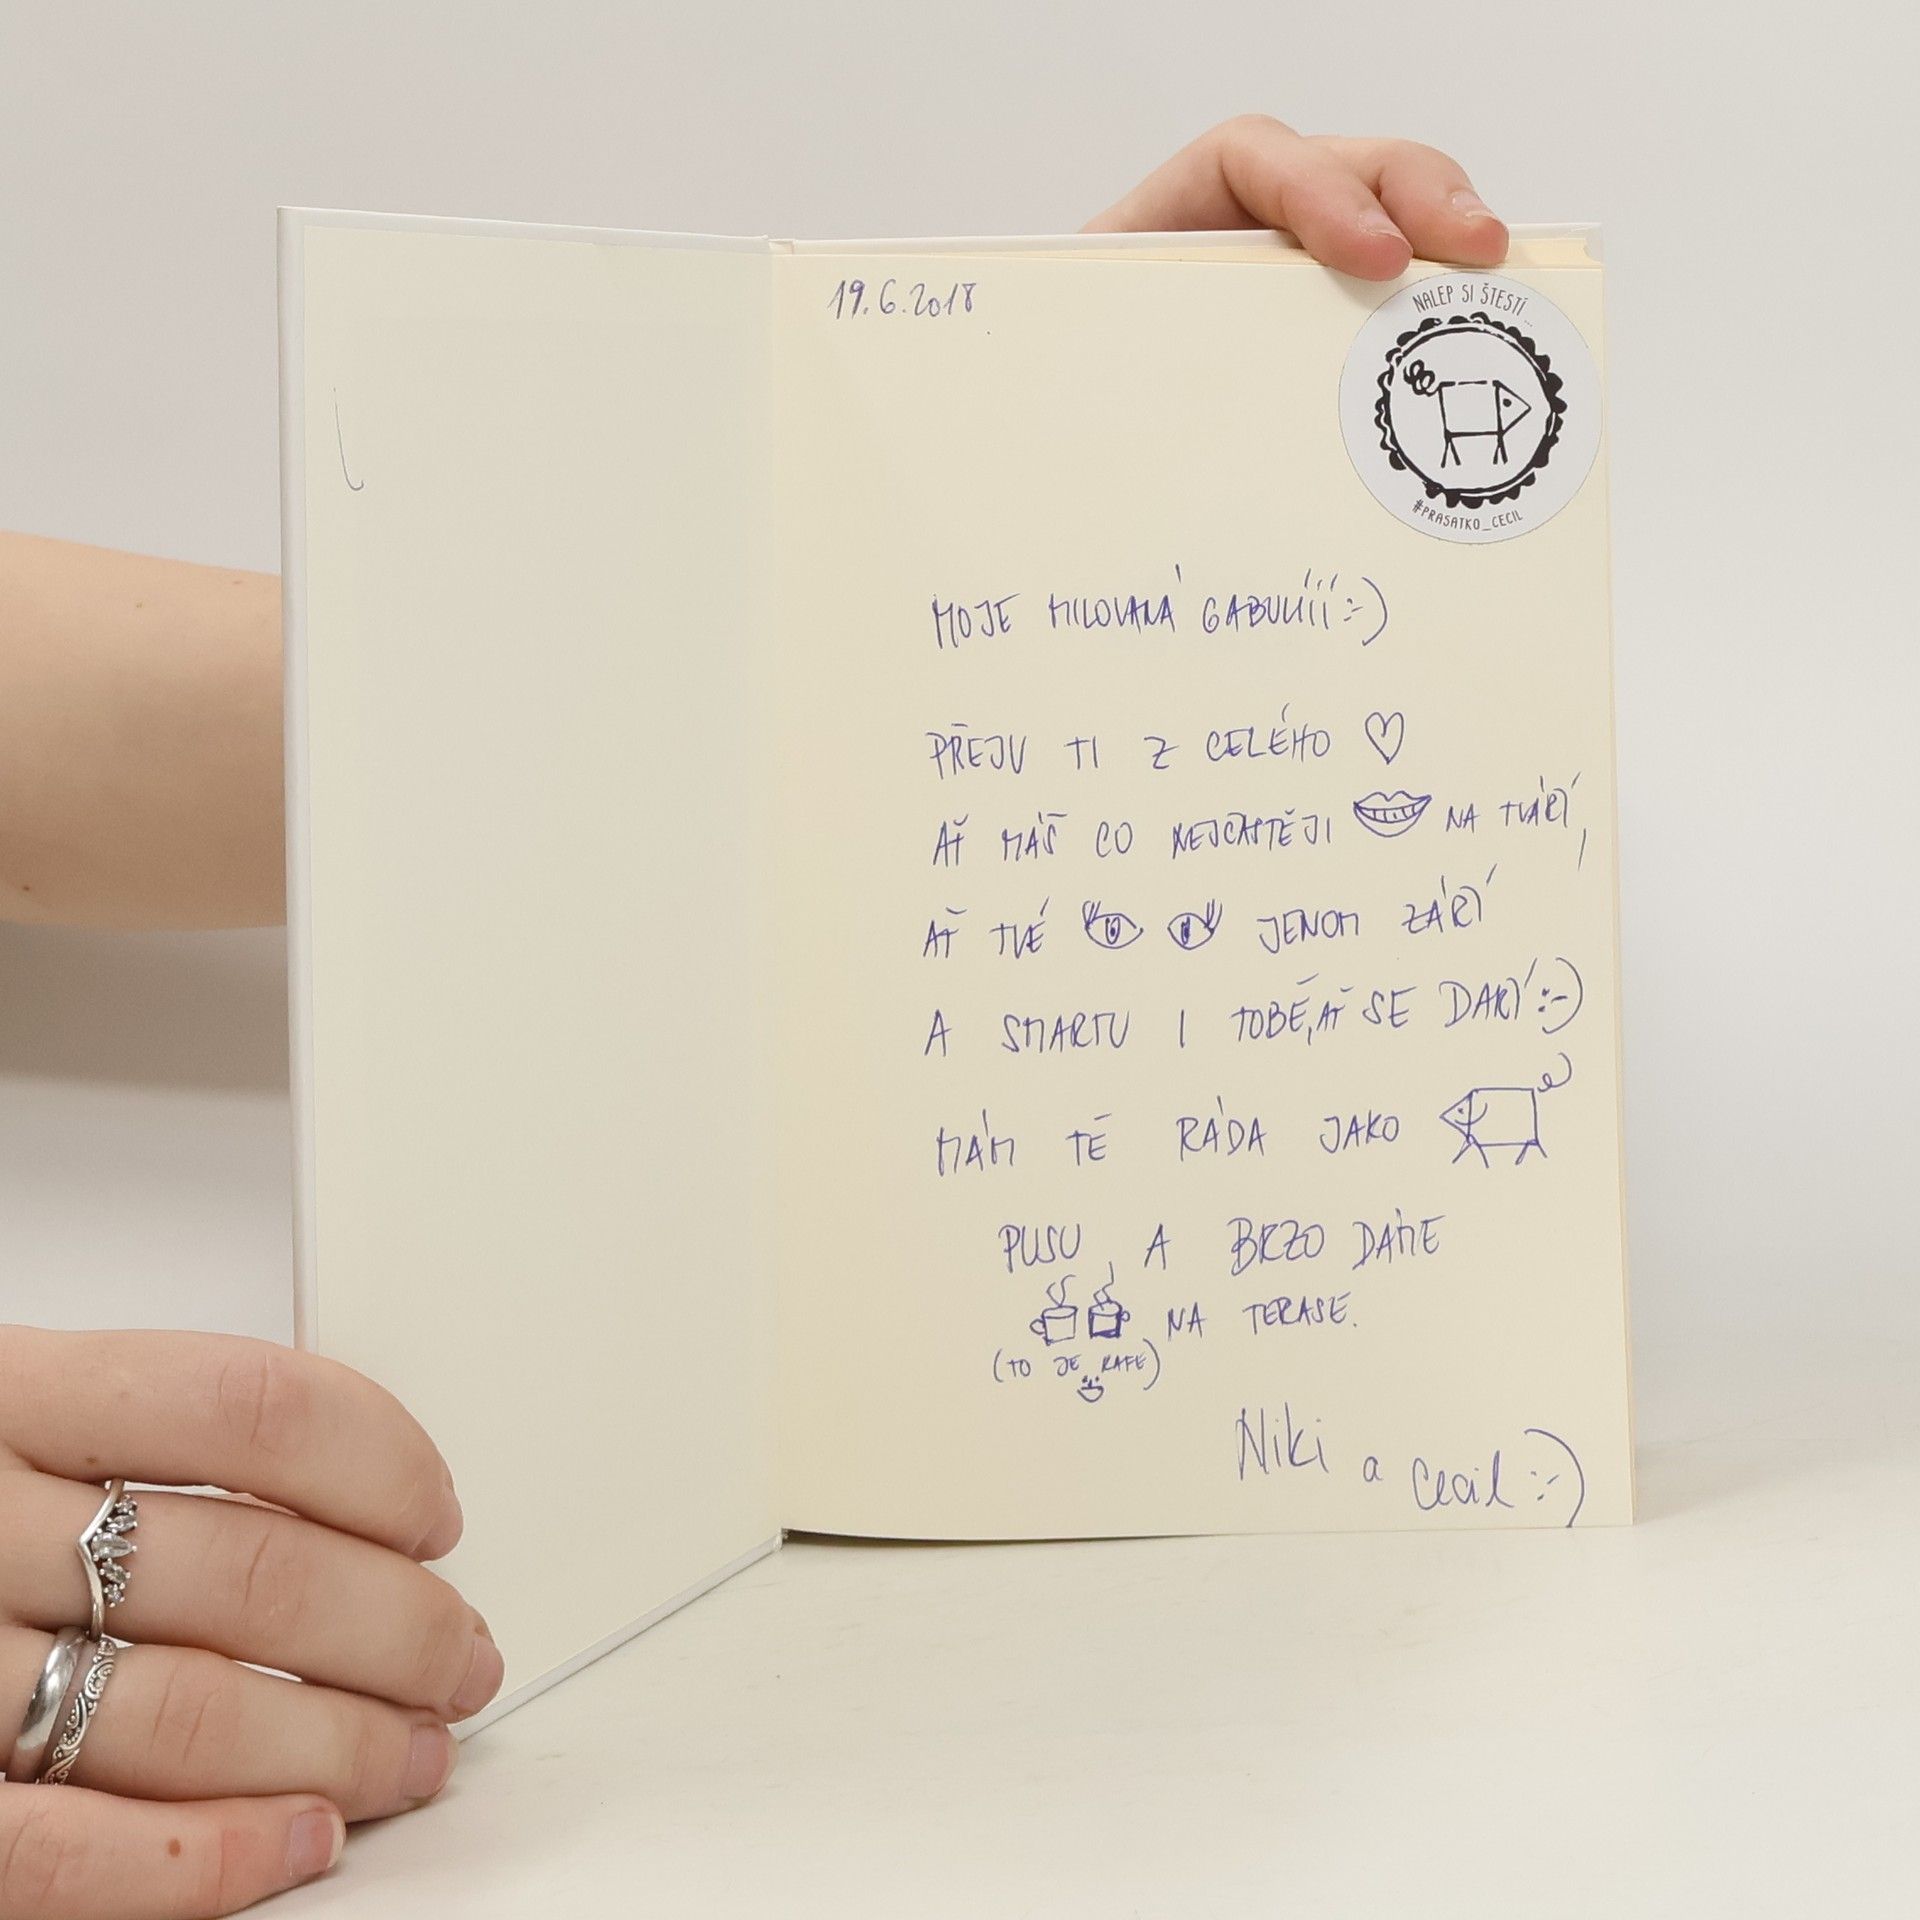 19.6.2018
NALEP SI ŠTESTÍ...
#PRASATKO_CECIL
MOJE MILOVANÁ GABULÍÍÍ :-)
PŘEJU TI Z CELÉHO
AŤ MÁŠ CO NEJČASTĚJI NA TVÁŘÍ,
AŤ TVÉ JENOM ZÁŘÍ
A SMARTU I TOBĚ, AŤ SE DAŘÍ :-)
MÁM TĚ RÁDA JAKO
PUSU A BRZO DÁME
NA TERASE.
(TO JE KAFE)
Niki a Cecil :-)